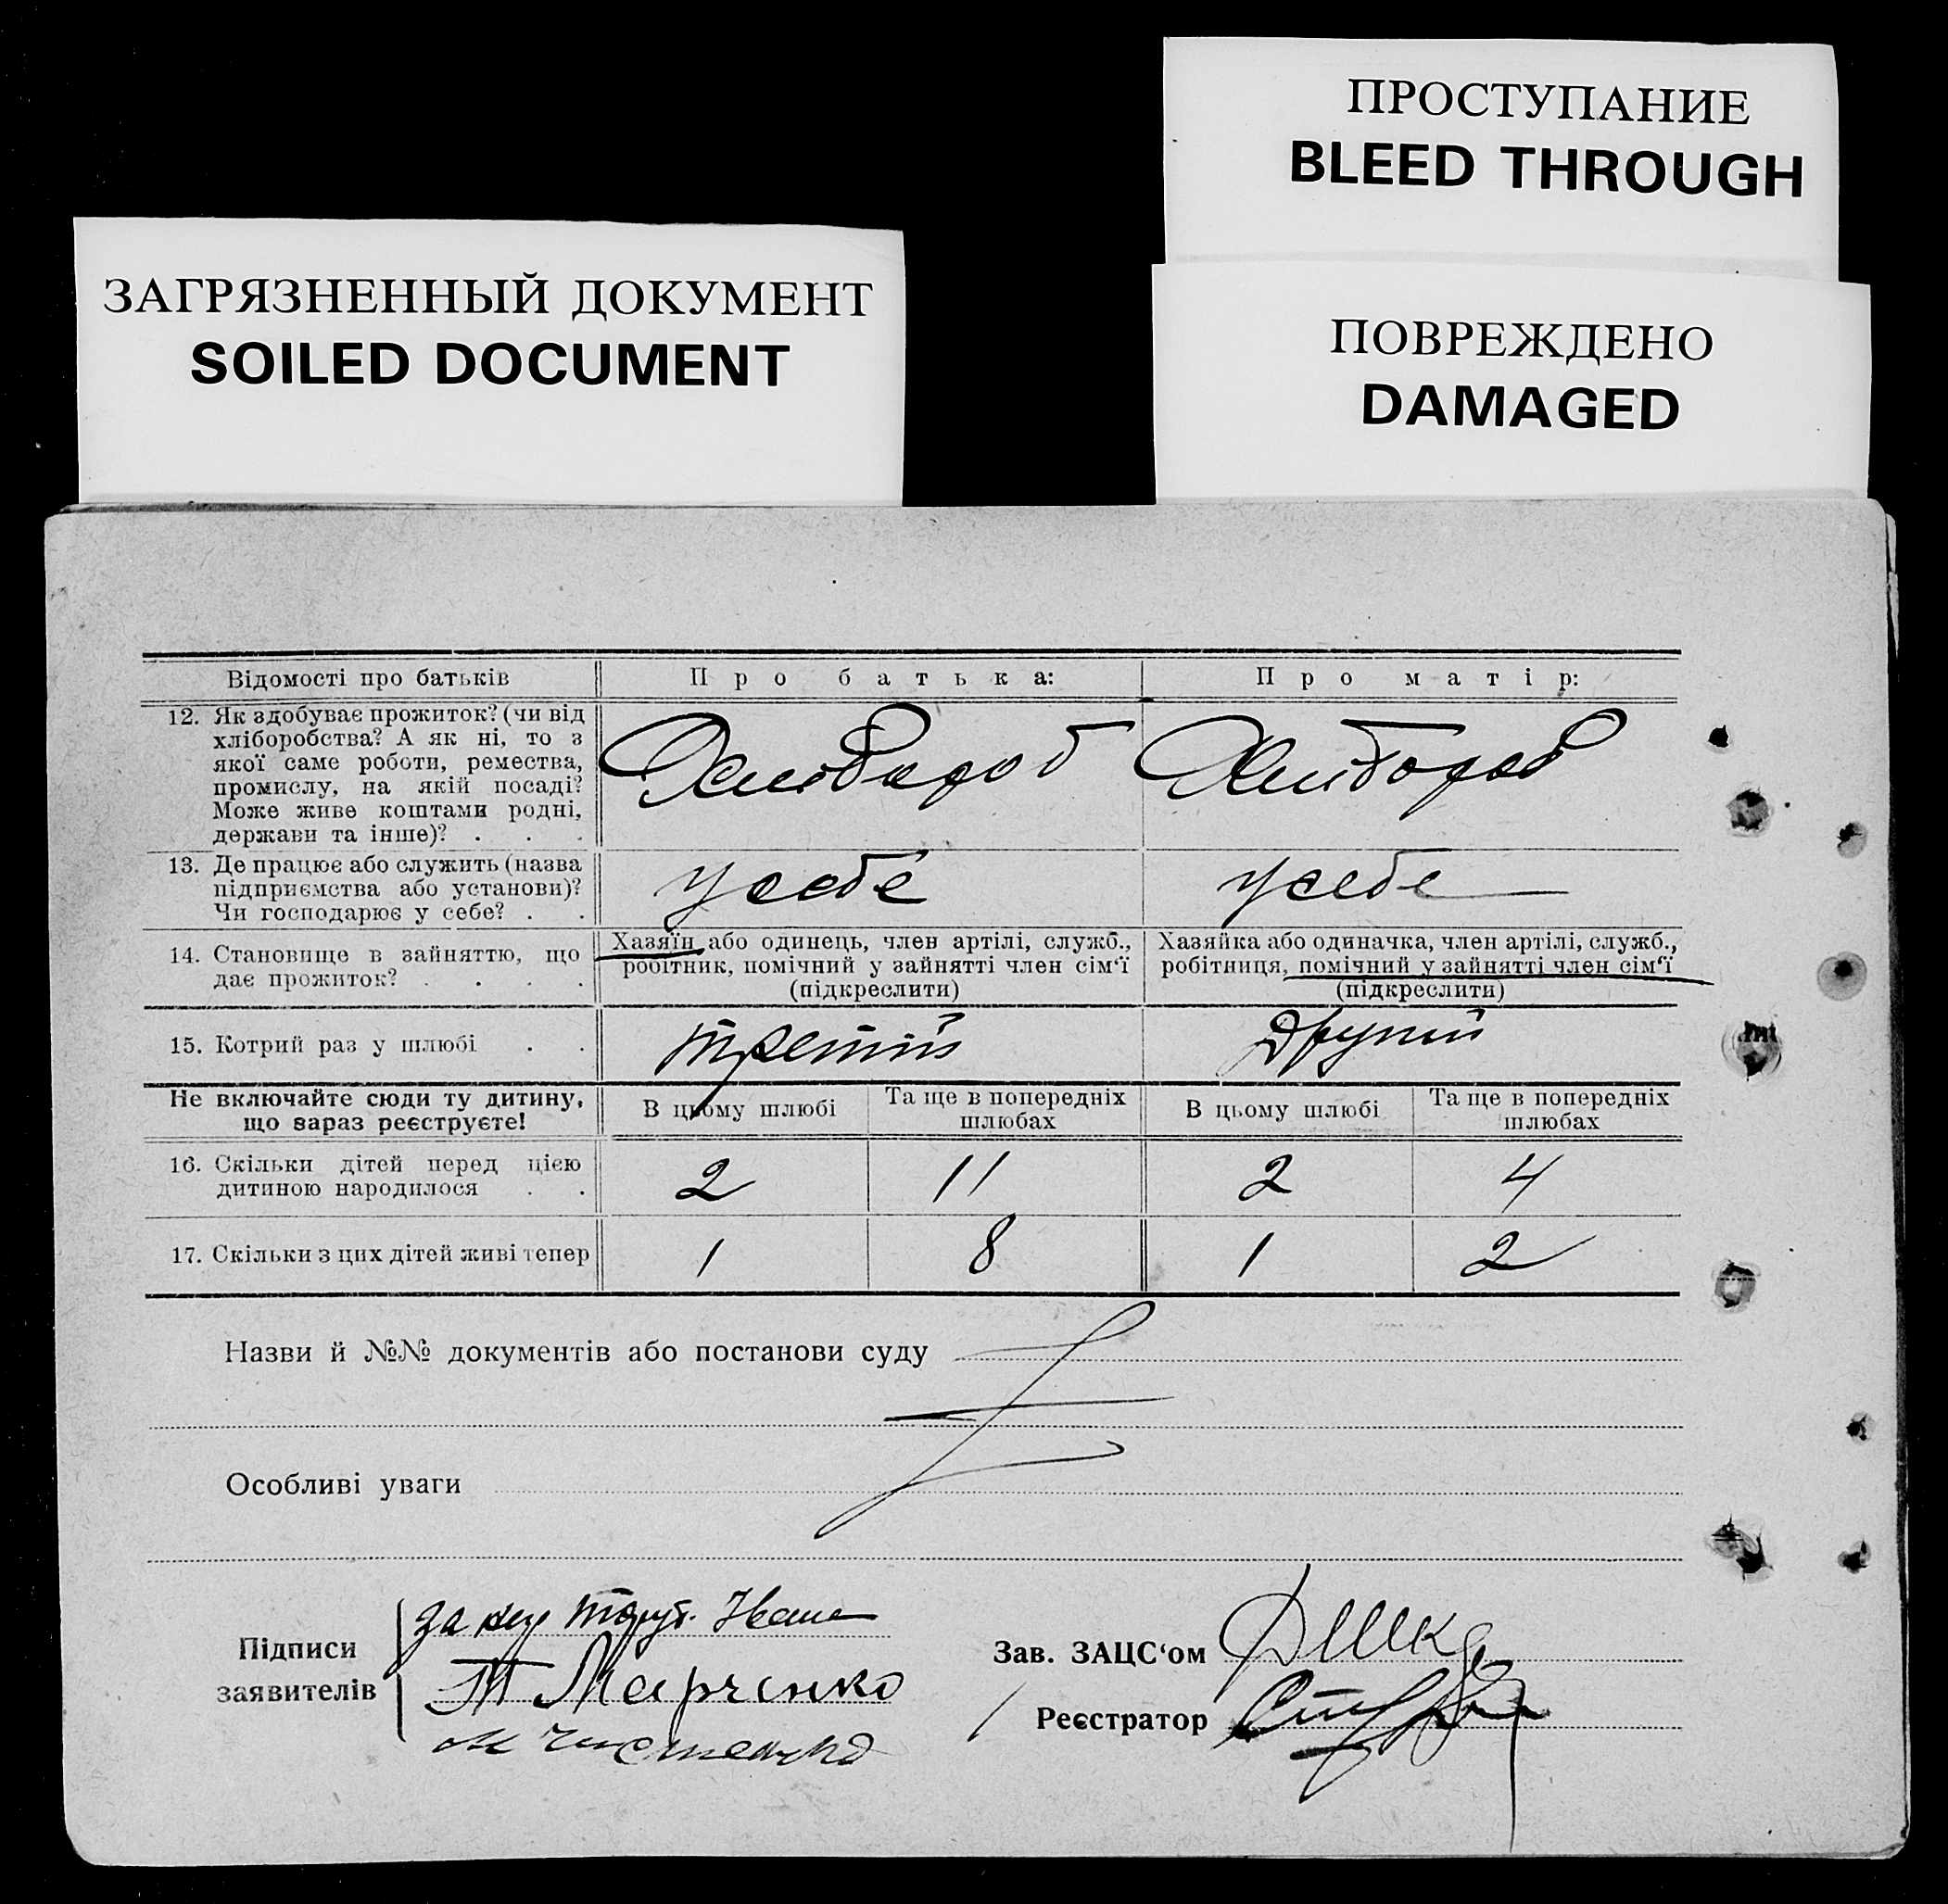 ПРОСТУПАНИЕ
BLEED THROUGH
ЗАГРЯЗНЕННЫЙ ДОКУМЕНТ
SOILED DOCUMENT
ПОВРЕЖДЕНО
DAMAGED
Відомості про батьків Про батька: Про матір:
12. Як здобуває прожиток? (чи від
хліборобства? А як ні, то з
якої саме роботи, ремества,
промислу, на якій посаді?
Може живе коштами родні,
держави та інше)? . . .
Хлібороб Хлібороб
13. Де працює або служить (назва
підприємства або установи)?
Чи господарює у себе? . .
У себе У себе
14. Становище в зайняттю, що
дає прожиток? . . . .
Хазяїн або одинець, член артілі, служб.,
робітник, помічний у зайнятті член сім‘ї
(підкреслити)
Хазяйка або одиначка, член артілі, служб.,
робітниця, помічний у зайнятті член сім‘ї
(підкреслити)
15. Котрий раз у шлюбі . . третій Другий
Не включайте сюди ту дитину,
що зараз реєструєте!
В цьому шлюбі Та ще в попередніх
шлюбах
В цьому шлюбі Та ще в попередніх
шлюбах
16. Скільки дітей перед цією
дитиною народилося . .
2 11 2 4
17. Скільки з цих дітей живі тепер 1 8 1 2
Назви й №№ документів або постанови суду
Особливі уваги
Підписи
заявителів
за
Т Марченко
Зав. ЗАЦС‘ом
Реєстратор